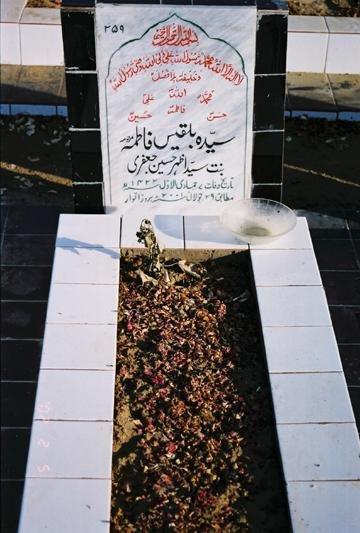 ۲۵۹
بسم اللہ الرحمن الرحیم
لا الہ الا اللہ محمد رسول اللہ علی ولی اللہ وصی رسول اللہ
وخلیفتہ بلا فصل
اللہ
محمد علی
فاطمہ
حسن حسین
سیدہ بلقیس فاطمہ
بنت سید اظہر حسین جعفری
تاریخ وفات ۷ جمادی الاول ۱۴۲۲ھ
مطابق ۲۹ جولائی ۲۰۰۱ء بروز اتوار